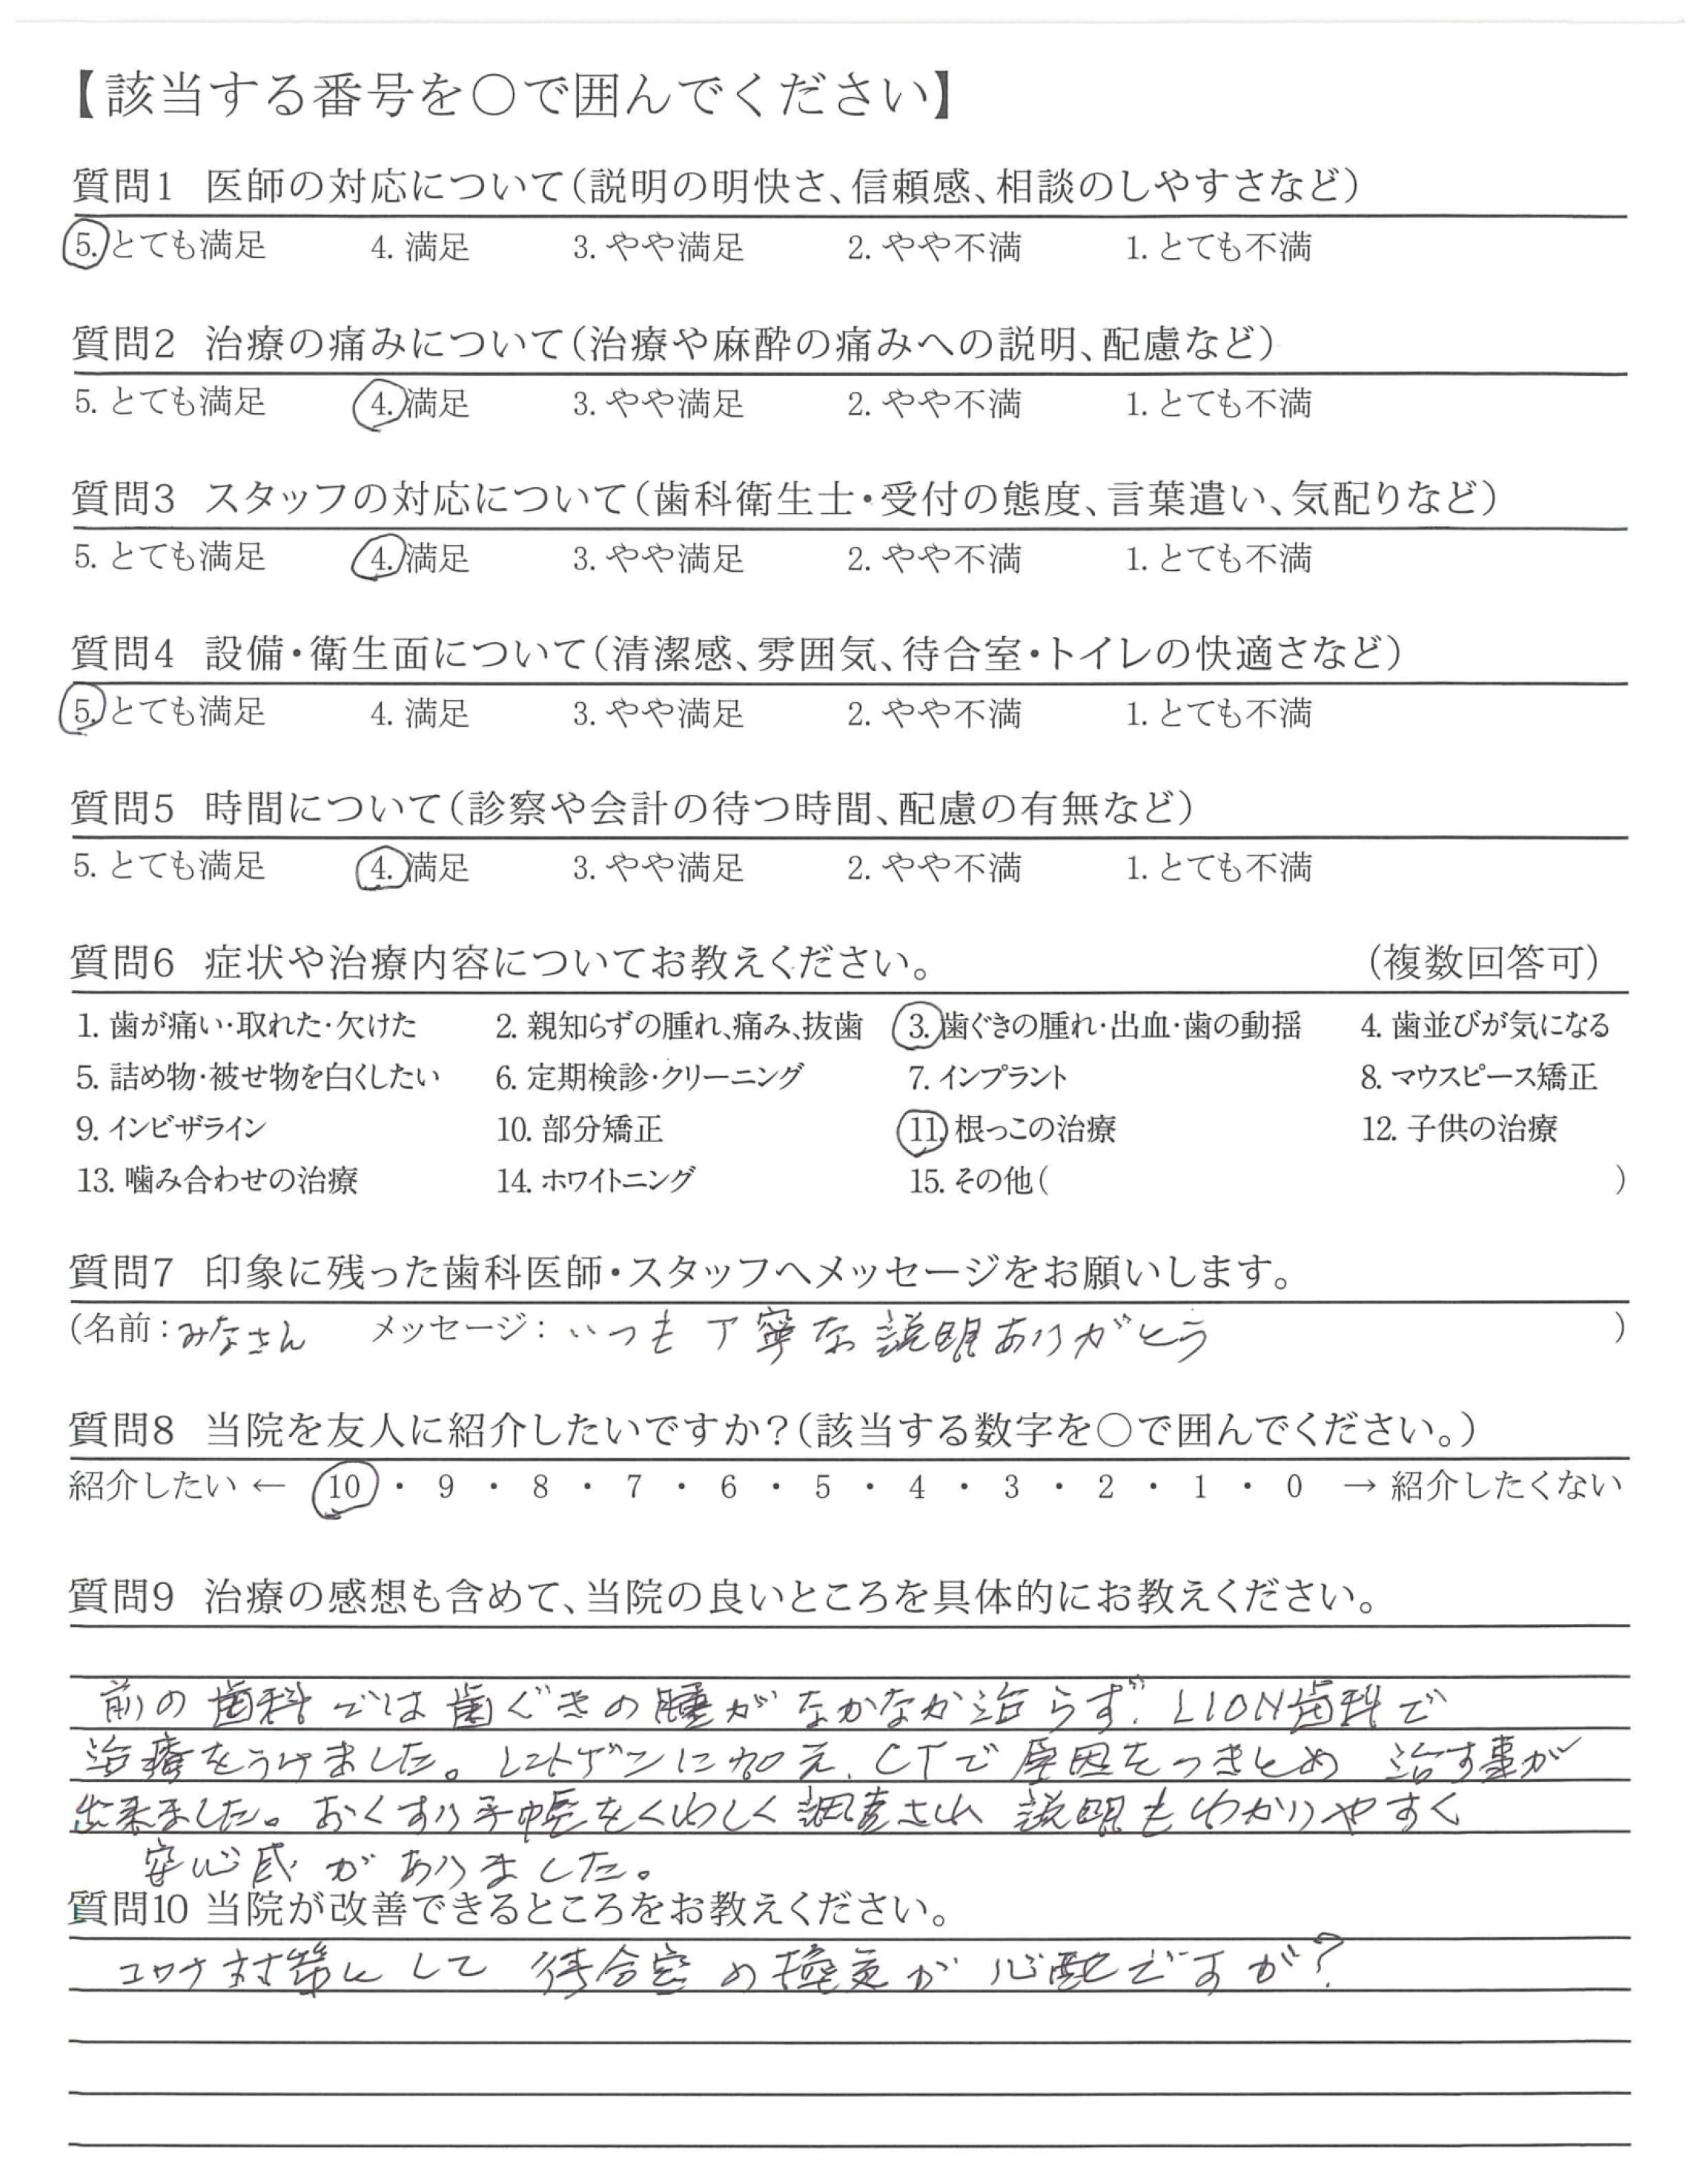 【該当する番号を○で囲んでください】
質問1 医師の対応について(説明の明快さ、信頼感、相談のしやすさなど)
5. とても満足 4. 満足 3. やや満足 2. やや不満 1. とても不満
質問2 治療の痛みについて(治療や麻酔の痛みへの説明、配慮など)
5. とても満足 4. 満足 3. やや満足 2. やや不満 1. とても不満
質問3 スタッフの対応について(歯科衛生士・受付の態度、言葉遣い、気配りなど)
5. とても満足 4. 満足 3. やや満足 2. やや不満 1. とても不満
質問4 設備・衛生面について(清潔感、雰囲気、待合室・トイレの快適さなど)
5. とても満足 4. 満足 3. やや満足 2. やや不満 1. とても不満
質問5 時間について(診察や会計の待つ時間、配慮の有無など)
5. とても満足 4. 満足 3. やや満足 2. やや不満 1. とても不満
質問6 症状や治療内容についてお教えください。 (複数回答可)
1. 歯が痛い・取れた・欠けた 2. 親知らずの腫れ、痛み、抜歯 3. 歯ぐきの腫れ・出血・歯の動揺 4. 歯並びが気になる
5. 詰め物・被せ物を白くしたい 6. 定期検診・クリーニング 7. インプラント 8. マウスピース矯正
9. インビザライン 10. 部分矯正 11. 根っこの治療 12. 子供の治療
13. 噛み合わせの治療 14. ホワイトニング 15. その他( )
質問7 印象に残った歯科医師・スタッフへメッセージをお願いします。
(名前:みなさん メッセージ:いつも丁寧な説明ありがとう )
質問8 当院を友人に紹介したいですか?(該当する数字を○で囲んでください。)
紹介したい ← 10 ・ 9 ・ 8 ・ 7 ・ 6 ・ 5 ・ 4 ・ 3 ・ 2 ・ 1 ・ 0 → 紹介したくない
質問9 治療の感想も含めて、当院の良いところを具体的にお教えください。
前の歯科では歯ぐきの腫がなかなか治らず、LION歯科で
治療をうけました。レントゲンに加え、CTで原因をつきとめ 治す事が
出来ました。おくすり手帳をくわしく調査され 説明もわかりやすく
安心感がありました。
質問10 当院が改善できるところをお教えください。
コロナ対策として 待合室の換気が心配ですが?